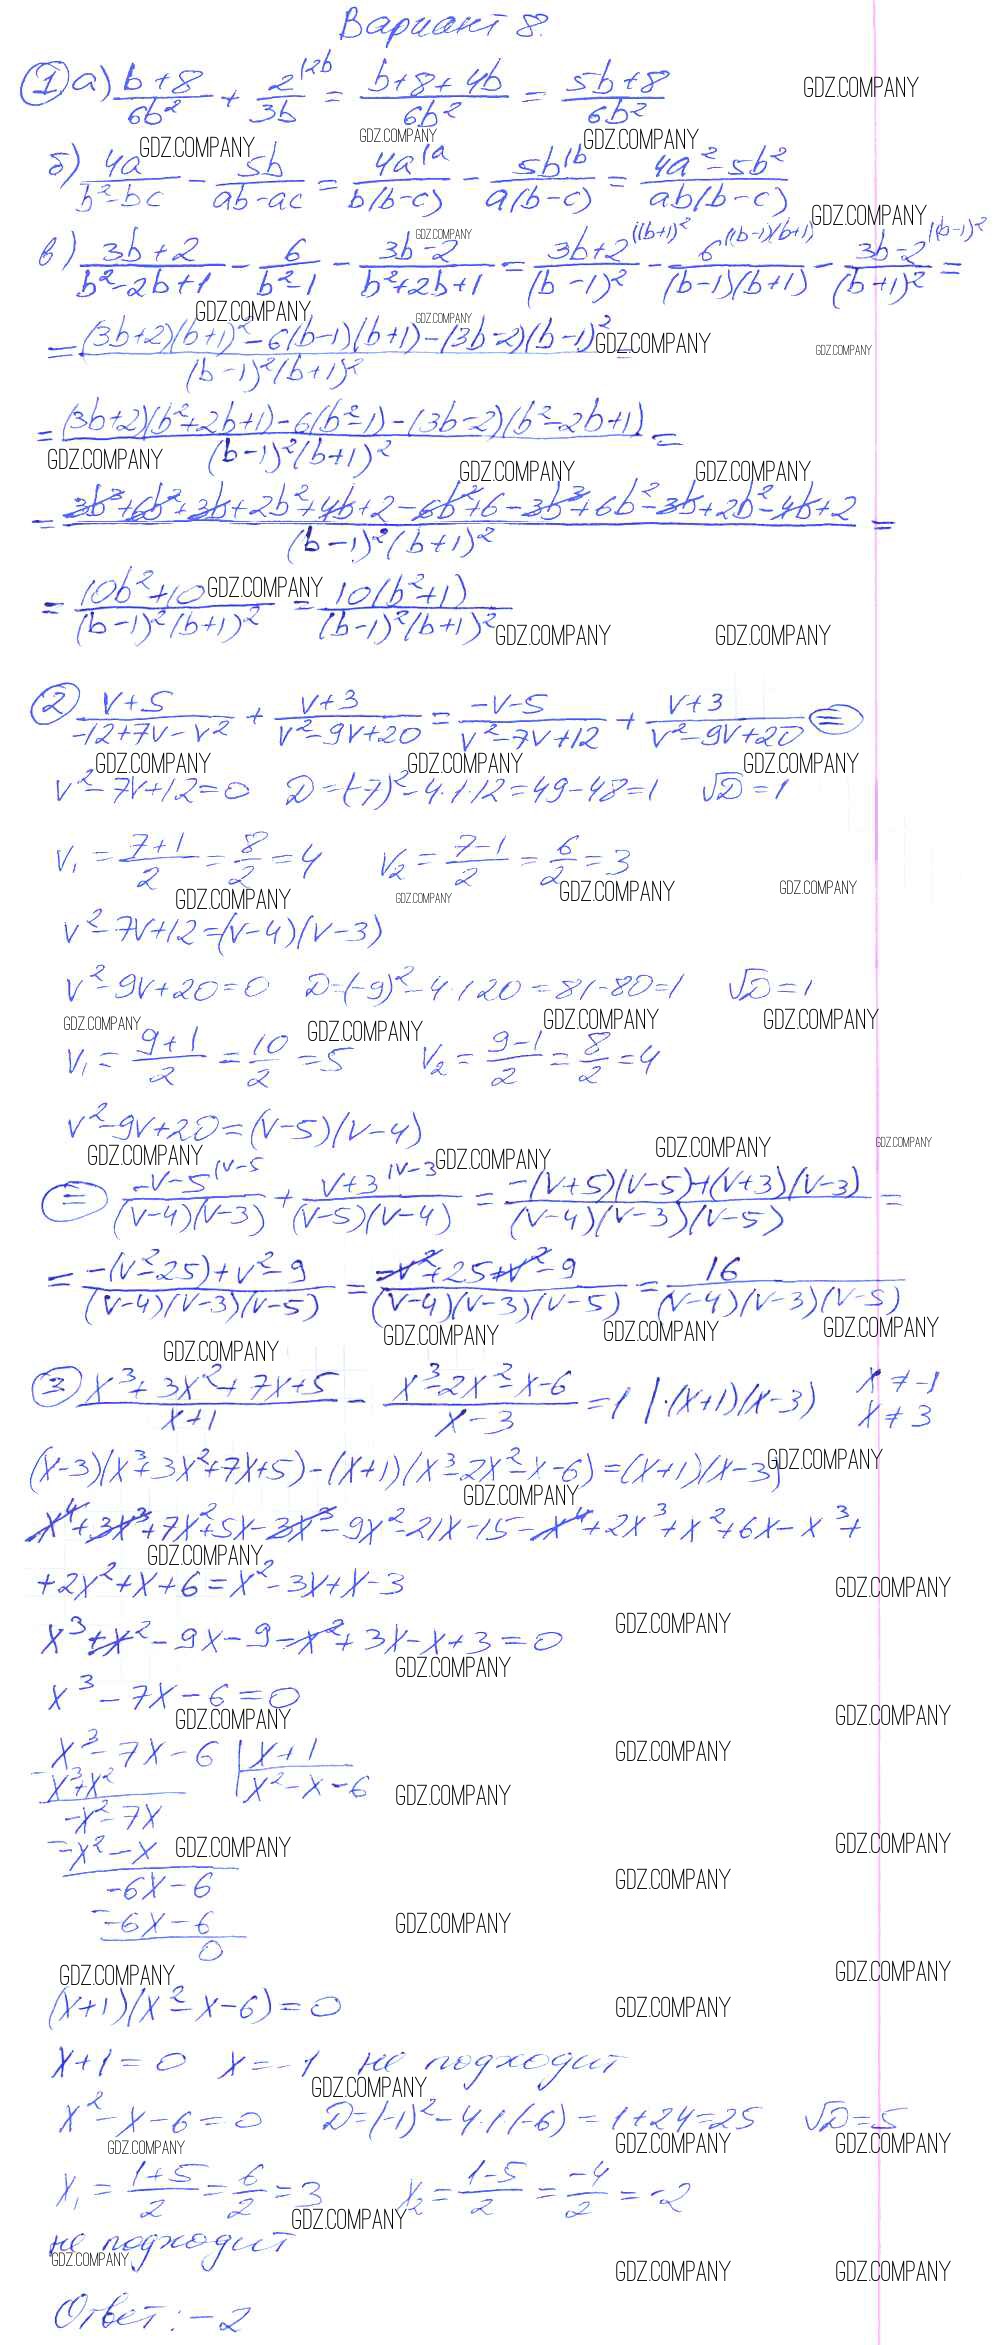 Вариант 8.
① а) (b+8)/(6b²) + 2^(|2b)/(3b) = (b+8+4b)/(6b²) = (5b+8)/(6b²)
GDZ.COMPANY
GDZ.COMPANY GDZ.COMPANY GDZ.COMPANY
б) 4a/(b²-bc) - 5b/(ab-ac) = 4a^(|a)/(b(b-c)) - 5b^(|b)/(a(b-c)) = (4a²-5b²)/(ab(b-c))
GDZ.COMPANY GDZ.COMPANY
в) (3b+2)/(b²-2b+1) - 6/(b²-1) - (3b-2)/(b²+2b+1) = (3b+2)^(|(b+1)²)/(b-1)² - 6^(|(b-1)(b+1))/((b-1)(b+1)) - (3b-2)^(|(b-1)²)/(b+1)² =
GDZ.COMPANY GDZ.COMPANY
= ((3b+2)(b+1)²-6(b-1)(b+1)-(3b-2)(b-1)²)/((b-1)²(b+1)²) =
GDZ.COMPANY GDZ.COMPANY
= ((3b+2)(b²+2b+1)-6(b²-1)-(3b-2)(b²-2b+1))/((b-1)²(b+1)²) =
GDZ.COMPANY GDZ.COMPANY GDZ.COMPANY
= (3b³+6b²+3b+2b²+4b+2-6b²+6-3b³+6b²-3b+2b²-4b+2)/((b-1)²(b+1)²) =
= (10b²+10)/((b-1)²(b+1)²) = 10(b²+1)/((b-1)²(b+1)²)
GDZ.COMPANY GDZ.COMPANY GDZ.COMPANY
② (v+5)/(-12+7v-v²) + (v+3)/(v²-9v+20) = (-v-5)/(v²-7v+12) + (v+3)/(v²-9v+20) ⊜
GDZ.COMPANY GDZ.COMPANY GDZ.COMPANY
v²-7v+12=0 D=(-7)²-4·1·12=49-48=1 √D=1
v₁ = (7+1)/2 = 8/2 = 4 v₂ = (7-1)/2 = 6/2 = 3
GDZ.COMPANY GDZ.COMPANY GDZ.COMPANY GDZ.COMPANY
v²-7v+12=(v-4)(v-3)
v²-9v+20=0 D=(-9)²-4·1·20=81-80=1 √D=1
GDZ.COMPANY GDZ.COMPANY GDZ.COMPANY GDZ.COMPANY
v₁ = (9+1)/2 = 10/2 = 5 v₂ = (9-1)/2 = 8/2 = 4
v²-9v+20=(v-5)(v-4)
GDZ.COMPANY GDZ.COMPANY GDZ.COMPANY GDZ.COMPANY
⊜ (-v-5)^(|v-5)/((v-4)(v-3)) + (v+3)^(|v-3)/((v-5)(v-4)) = (-(v+5)(v-5)+(v+3)(v-3))/((v-4)(v-3)(v-5)) =
= (-(v²-25)+v²-9)/((v-4)(v-3)(v-5)) = (-v²+25+v²-9)/((v-4)(v-3)(v-5)) = 16/((v-4)(v-3)(v-5))
GDZ.COMPANY GDZ.COMPANY GDZ.COMPANY GDZ.COMPANY
③ (x³+3x²+7x+5)/(x+1) - (x³-2x²-x-6)/(x-3) = 1 |·(x+1)(x-3) x≠-1
x≠3
(x-3)(x³+3x²+7x+5)-(x+1)(x³-2x²-x-6)=(x+1)(x-3)
GDZ.COMPANY GDZ.COMPANY
x⁴+3x³+7x²+5x-3x³-9x²-21x-15-x⁴+2x³+x²+6x-x³+
GDZ.COMPANY
+2x²+x+6=x²-3x+x-3
GDZ.COMPANY GDZ.COMPANY
x³+x²-9x-9-x²+3x-x+3=0
GDZ.COMPANY
x³-7x-6=0
GDZ.COMPANY GDZ.COMPANY
x³-7x-6 | x+1
GDZ.COMPANY
-x³+x² x²-x-6
GDZ.COMPANY
-x²-7x
- -x²-x
GDZ.COMPANY GDZ.COMPANY
-6x-6
GDZ.COMPANY
- -6x-6
GDZ.COMPANY
0
GDZ.COMPANY GDZ.COMPANY
(x+1)(x²-x-6)=0
GDZ.COMPANY
x+1=0 x=-1 не подходит
GDZ.COMPANY
x²-x-6=0 D=(-1)²-4·1·(-6)=1+24=25 √D=5
GDZ.COMPANY GDZ.COMPANY GDZ.COMPANY
x₁ = (1+5)/2 = 6/2 = 3 x₂ = (1-5)/2 = -4/2 = -2
GDZ.COMPANY
не подходит
GDZ.COMPANY GDZ.COMPANY GDZ.COMPANY
Ответ: -2